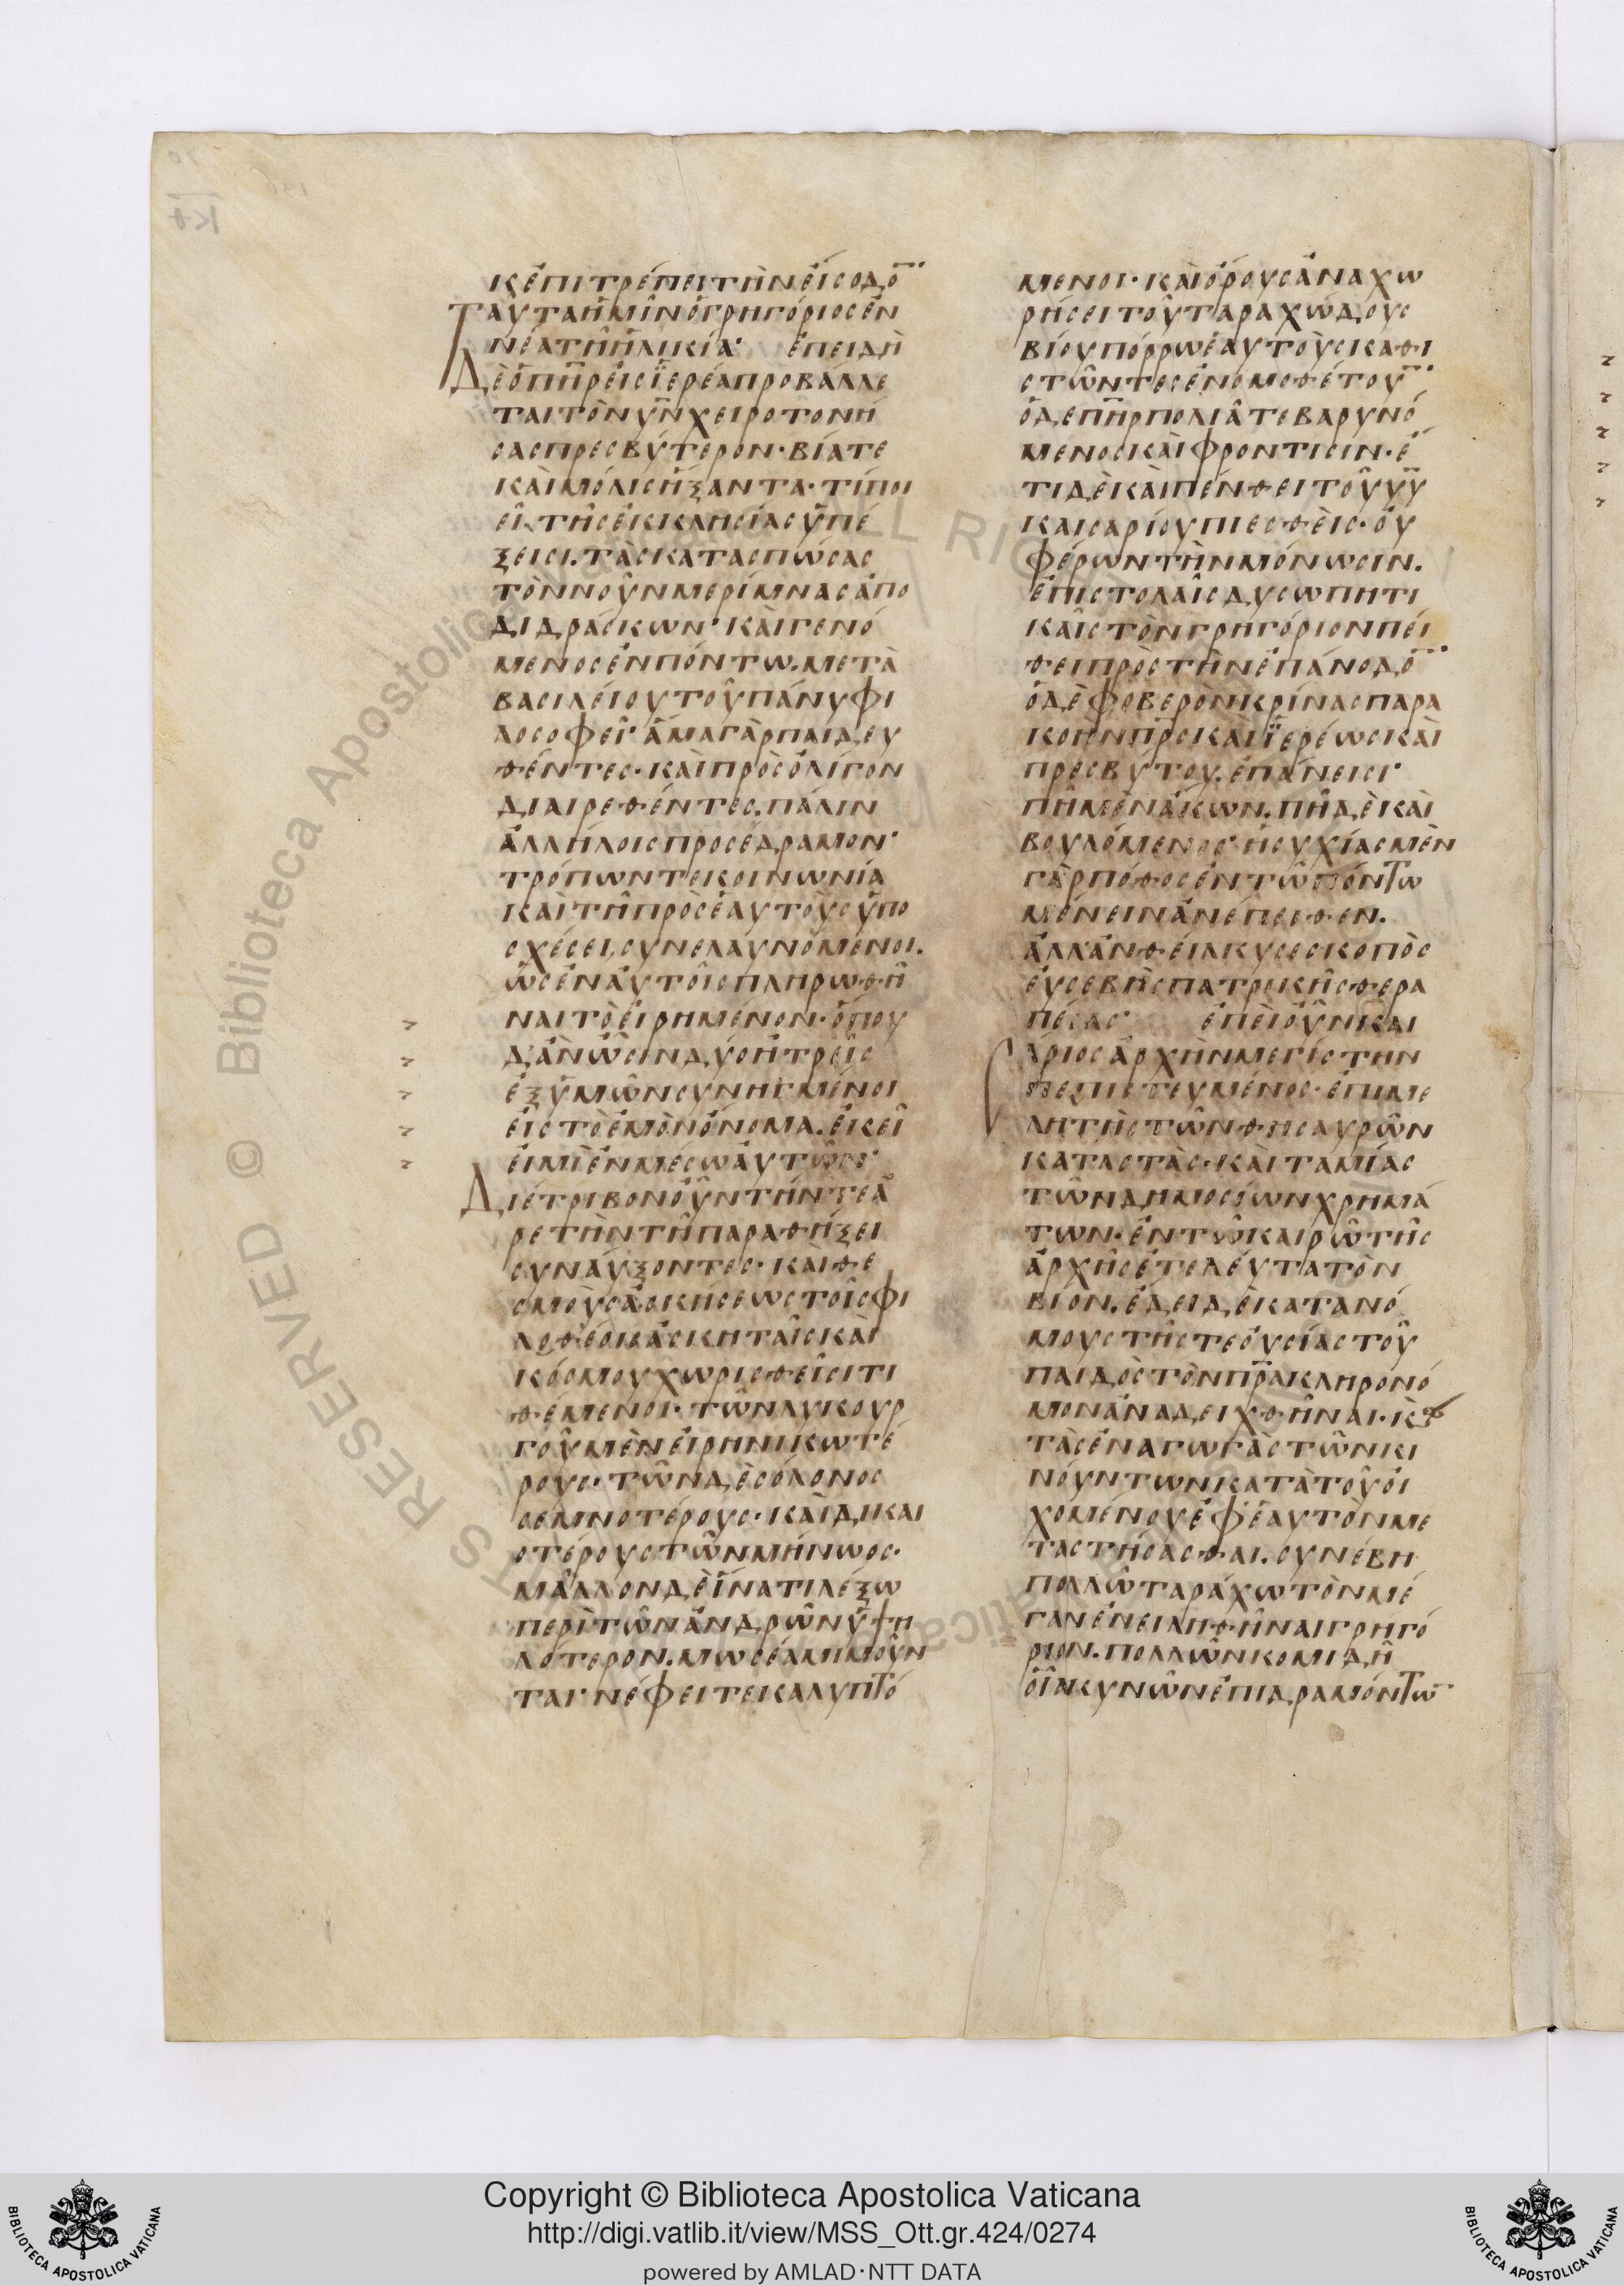 κ ἐπιτρέπει τὴν εἴσοδο̅·
Ταῦτα ἡμῖν ὁ γρηγόριος ἐν
νέα τῆ ἡλικία· ἐπειδὴ
Δὲ ὁ π̅η̅ρ εἰς ϊερέα προβάλλε
ται τὸν υ̅ν̅ χειροτονή
σας πρεσβύτερον· βία τε
καὶ μόλις ἥξαντα· τί ποι
εῖ· τῆς ἐκκλησίας ὑπέ
ξεισι. τὰς κατασπώσας
τὸν νοῦν μερίμνας ἀπο
διδράσκων· καὶ γενό
μενος ἐν πόντω. μετὰ
βασιλείου τοῦ πάνυ φι
λοσοφεῖ· ἅμα γὰρ παιδευ
θέντες· καὶ πρὸς ὀλίγον
διαιρεθέντες. πάλιν
ἀλλήλοις προσέδραμον·
τρόπων τε κοινωνία
καὶ τῆ πρὸς ἑαυτοὺς ὑπο
σχέσει, συνελαυνόμενοι.
ὡς ἐν αὐτοῖς πληρωθῆ
ναι τὸ εἰρημένον· ὅπου
δ' ἂν ὦσιν δύο ἢ τρεῖς
ἐξ ὑμῶν συνηγμένοι
εἰς τὸ ἐμὸν ὄνομα. ἐκεῖ
εἰμὶ ἐν μέσω αὐτῶν·
Διέτριβον οὖν τήν τε ἀ
ρετὴν τῆ παραθήξει
συναύξοντες· καὶ θε
σμοὺς ἀσκήσεως τοῖς φι
λοθέοις ἀσκηταῖς καὶ
κόσμου χωρισθεῖσι τι
θέμενοι· τῶν λυκούρ
γου μὲν εἰρηνικωτέ
ρους· τῶν δὲ σόλονος
σεμνοτέρους· καὶ δικαι
οτέρους τῶν μήνωος·
μᾶλλον δὲ ἵνα τι λέξω
περὶ τῶν ἀνδρῶν ὑψη
λότερον. μωσέα μιμοῦν
ται· νέφει τε καλυπτό
μενοι· καὶ ὄρους ἀναχω
ρήσει τοῦ ταραχώδους
βίου πόρρω ἑαυτοὺς καθι
στῶντες ἐνομοθέτου̅·
ὁ δε π̅η̅ρ πολιᾶ τε βαρυνό
μενος καὶ φροντίσιν· ἔ
τι δὲ καὶ πένθει τοῦ υ̅υ̅
καισαρίου πιεσθεὶς· οὐ
φέρων τὴν μόνωσιν.
ἐπιστολαῖς δυσωπητι
καῖς τὸν γρηγόριον πεί
θει πρὸς τὴν ἐπάνοδο̅·
ὁ δὲ φοβερὸν κρίνας παρα
κοὴν π̅ρ̅ς καὶ ϊερέως καὶ
πρεσβύτου. ἐπάνεισι·
πῆ μὲν ἄκων. πῆ δὲ καὶ
βουλόμενος· ἡσυχίας μὲν
γὰρ πόθος ἐν τῶ πόντω
μένειν ἀνέπειθεν.
ἀλλ' ἀνθείλκυσε σκοπὸς
εὐσεβὴς πατρικῆς θερα
πείας· ἐπεὶ οὖν και
σάριος ἀρχὴν μεγίστην
πεπιστευμένος· ἐπιμε
λητὴς τῶν θησαυρῶν
καταστὰς· καὶ ταμίας
τῶν δημοσίων χρημά
των· ἐν τῶ καιρῶ τῆς
ἀρχῆς ἐτελεύτα τὸν
βίον. ἔδει δὲ κατὰ νό
μους τῆς τε οὐσίας τοῦ
παιδὸς τὸν π̅ρ̅α κληρονό
μον ἀναδειχθῆναι· κ̀
τὰς ἐναγωγὰς τῶν κι
νούντων κατὰ τοῦ οἰ
χομένου ἐφ' ἑαυτὸν με
ταστήσασθαι. συνέβη
πολλῶ ταράχω τὸν μέ
γαν ἐνειληθῆναι γρηγό
ριον. πολλῶν κομιδῆ
οἷα κυνῶν ἐπιδραμόντω̅
Copyright © Biblioteca Apostolica Vaticana
http://digi.vatlib.it/view/MSS_Ott.gr.424/0274
powered by AMLAD·NTT DATA
BIBLIOTECA APOSTOLICA VATICANA
BIBLIOTECA APOSTOLICA VATICANA